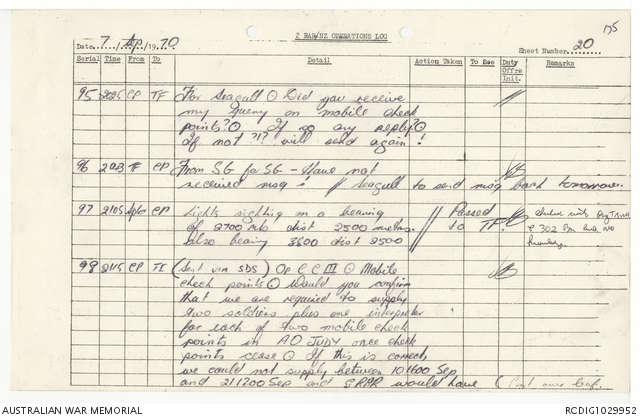 175
2 RAR/NZ OPERATIONS LOG
Date 7 / Sep / 1970
Sheet Number 20
Serial Time From To Detail Action Taken To See Duty Offrs Init. Remarks
95 2025 CP TF For Seagull ⊙ Did you receive
my query on mobile check
points? ⊙ If so any reply? ⊙
If not ?!? will send again!
96 CP From SG for SG - Have not
received msg! // Seagull to send msg back tomorrow.
97 2105 CP Lights sighting on a bearing // Passed
of 2700 mils dist 2500 metres. // to TF.
also bearing 3800 dist 2500
98 2115 CP TF (Sent via SDS) Op C C III ⊙ Mobile
check points ⊙ Would you confirm
that we are required to supply
two soldiers plus one interpreter
for each of two mobile check
points in AO JUDY once check
points cease ⊙ If this is correct,
we could not supply between 101600 Sep
and 211200 Sep and 8RAR would have (Cont over leaf.
AUSTRALIAN WAR MEMORIAL
RCDIG1029952